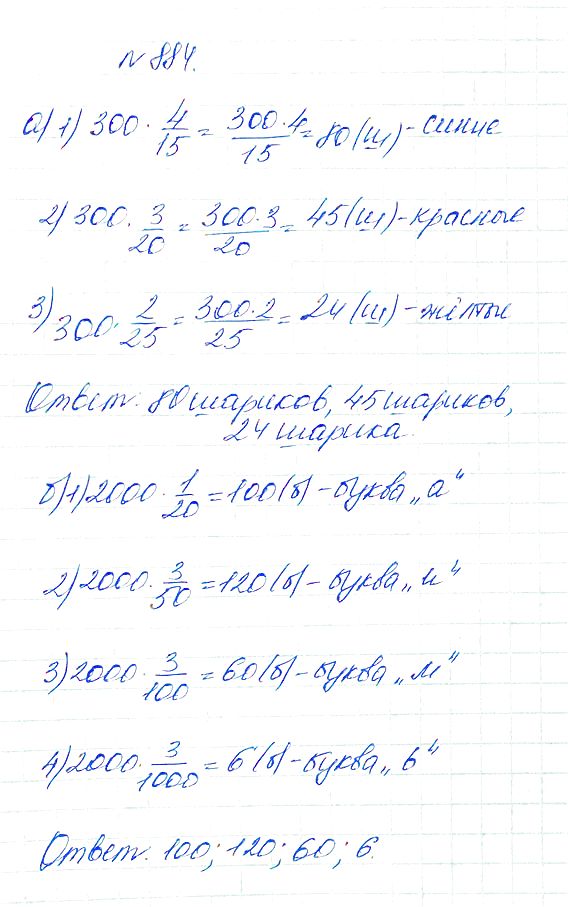 N 884.
а) 1) 300 · 4/15 = 300·4/15 = 80 (ш) - синие
2) 300 · 3/20 = 300·3/20 = 45 (ш) - красные
3) 300 · 2/25 = 300·2/25 = 24 (ш) - жёлтые
Ответ: 80 шариков, 45 шариков,
24 шарика.
б) 1) 2000 · 1/20 = 100 (б) - буква „а“
2) 2000 · 3/50 = 120 (б) - буква „и“
3) 2000 · 3/100 = 60 (б) - буква „м“
4) 2000 · 3/1000 = 6 (б) - буква „ь“
Ответ: 100; 120; 60; 6.